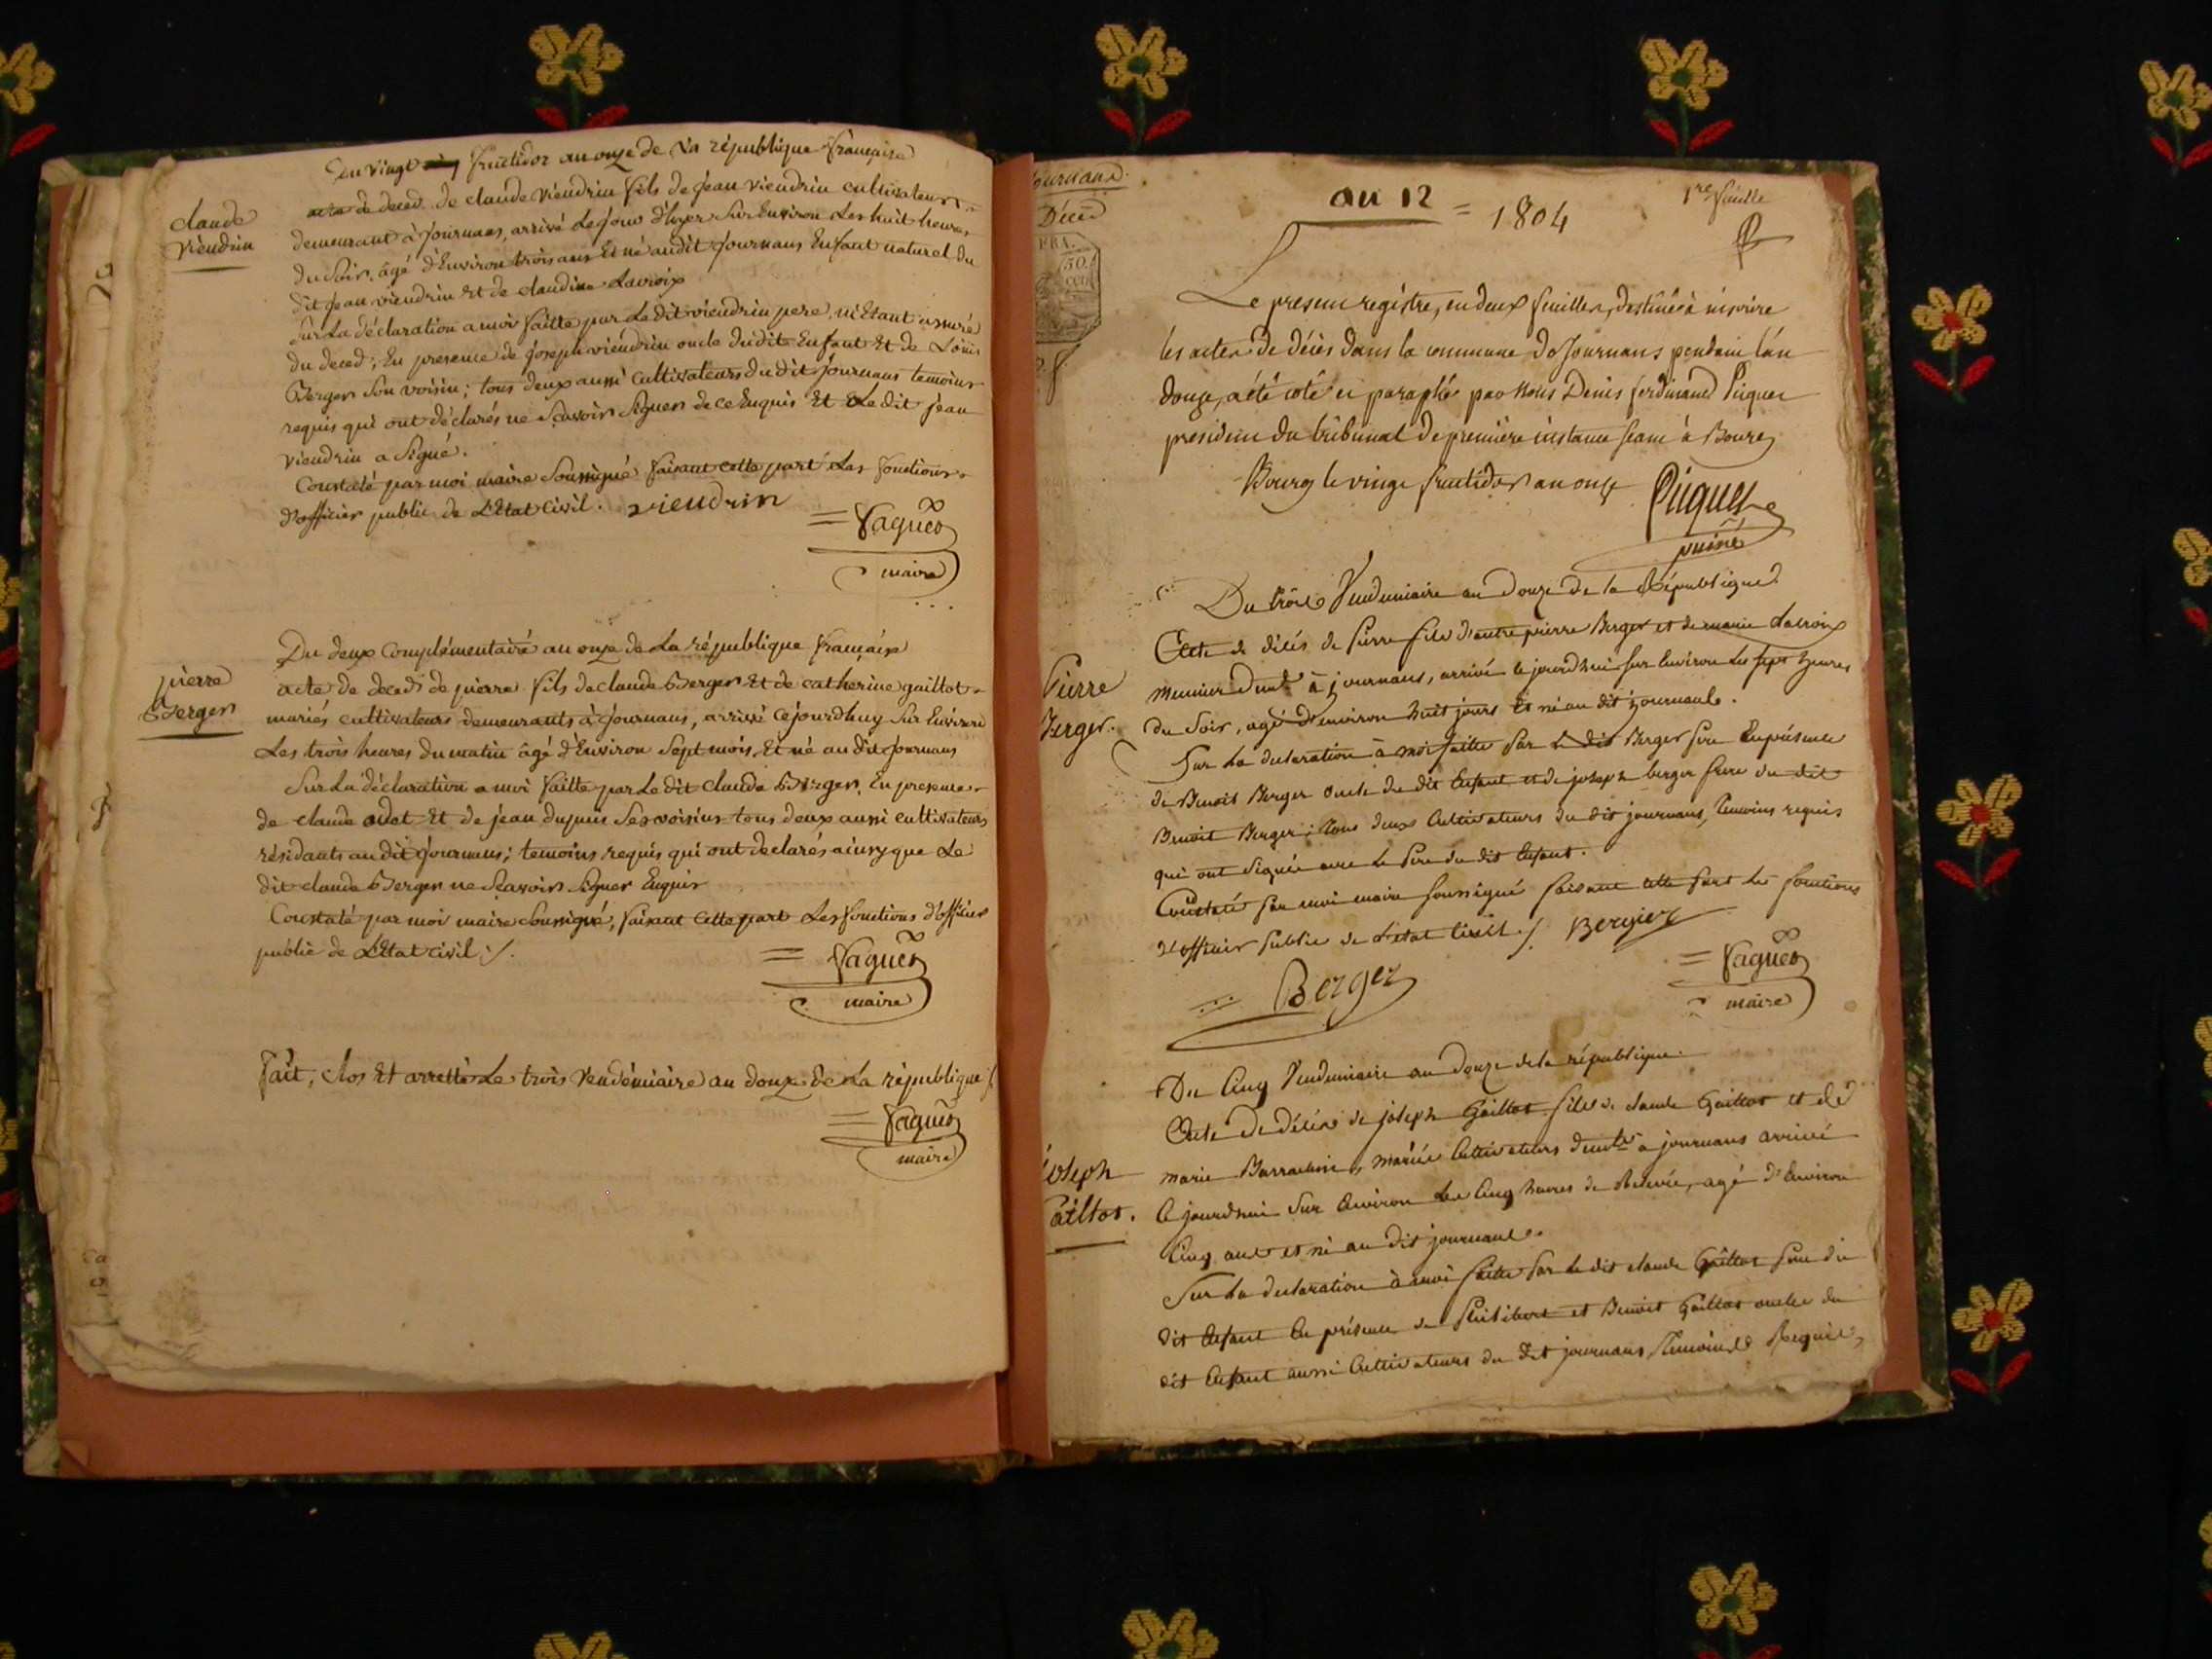 Du vingt fructidor an onze de la république française
claude
viendrin
acte de deced de claude viendrin fils de jean viendrin cultivateur
demeurant à journans, arrivé le jour d'hyer sur Environ Les huit heures
du soir, âgé d'Environ trois ans Et né audit journans Enfant naturel du
dit jean viendrin Et de claudine Lavroix
Sur La déclaration a moi faitte par Le dit viendrin pere, m'Etant assuré
du deced; En presence de joseph viendrin oncle dudit Enfant Et de Louis
Berger Son voisin; tous deux aussi cultivateurs du dit journans temoins
requis qui ont déclarés ne Sçavoir Signer de ce Enquis Et Le dit jean
viendrin a Signé.
Constaté par moi maire Soussigné faisant cette part Les fonctions
d'officier public de L'Etat Civil. viendrin
= faguet
maire
Du deux Complémentaire an onze de La république française
pierre
Berger
acte de deced de pierre fils de claude Berger Et de catherine gaillot
mariés cultivateurs demeurants à journans, arrivé cejourdhuy Sur Environ
Les trois heures du matin âgé d'Environ Sept mois, Et né au dit journans
Sur La déclaration a moi faitte par Le dit claude Berger, En presence
de claude Et de jean Ses voisins tous deux aussi cultivateurs
résidants au dit journans; temoins requis qui ont declarés ainsy que Le
dit claude Berger ne Sçavoir Signer Enquis
Constaté par moi maire Soussigné, faisant cette part Les fonctions d'officier
public de L'Etat civil ./.
= faguet
maire
fait, clos Et arretté Le trois vendémiaire an douze de La république ./
= faguet
maire
journans.
Décès
FRA.
50.
cent
an 12 = 1804
1re feuille
Le present registre, en deux feuilles, destiné à inscrire
les actes de décès dans la commune de Journans pendant l'an
douze, a été coté et paraphé par Nous Denis ferdinand Piquet
president du tribunal de première instance seant à Bourg
Bourg le vingt fructidor an onze
Piquet
puiné
Du trois Vendemiaire an Douze de la République
Pierre
Berger.
Acte de décés de Pierre fils d'autre pierre Berger et de marie Lacroix
meunier demt à journans, arrivé ce jourdhui sur Environ les sept heures
du Soir, agé d'environ huit jours Et né au dit journans.
Sur La declaration à moi faitte par Le dit Berger pere En présence
de Benoit Berger oncle du dit Enfant et de joseph berger frere du dit
Benoit Berger; tous deux Cultivateurs du dit journans, temoins requis
qui ont Signés avec Le Pere du dit Enfant.
Constaté par moi maire soussigné faisant cette part les fonctions
d'officier public de L'etat Civil ./. Bergier
Berger
= faguet
maire
Du Cinq Vendemiaire an Douze de la république.
joseph
Gaillot.
Acte de Décés de joseph Gaillot fils de claude Gaillot et de
marie mariés Cultivateurs demts a journans arrivé
Ce jourdhui Sur Environ Les Cinq heures de Relevée, agé d'Environ
Cinq ans et né au dit journans.
Sur La declaration à moi faitte par Le dit claude Gaillot pere du
dit Enfant En présence de Philibert et Benoit Gaillot oncles du
dit Enfant aussi Cultivateurs du dit journans temoins Requis,